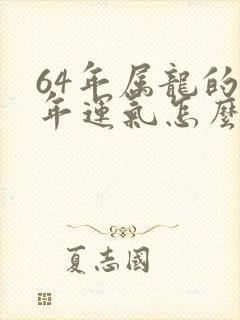 64年属龍的
年運氣怎麼
夏志國